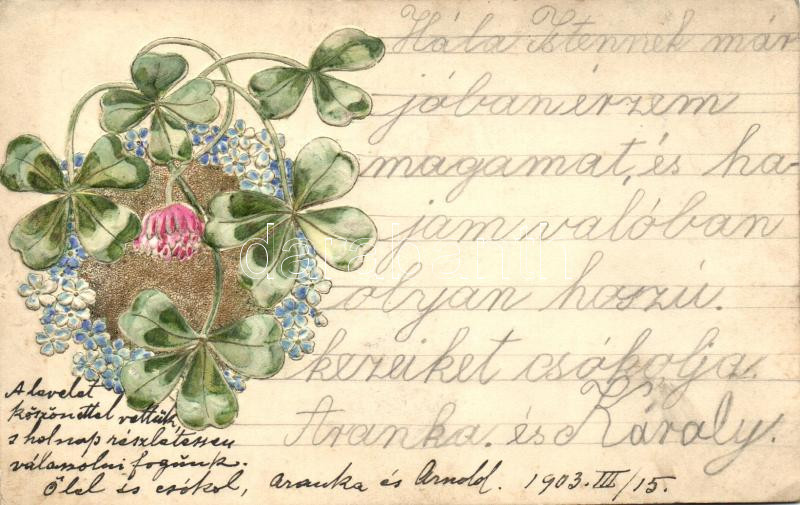 Hála Istennek már
jóban érzem
magamat, és ha-
jam valóban
olyan hoszú.
kezeiket csókolja.
Aranka. és Károly.
A levelet
köszönettel vettük,
s holnap részletessen
válaszolni fogunk.
Ölel és csókol, Aranka és Arnold. 1903. III/15.